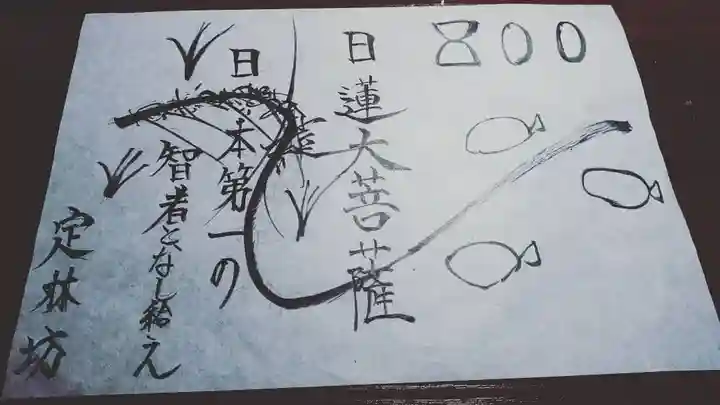 800
日蓮大菩薩
日本第一の
智者となし給え
定林坊